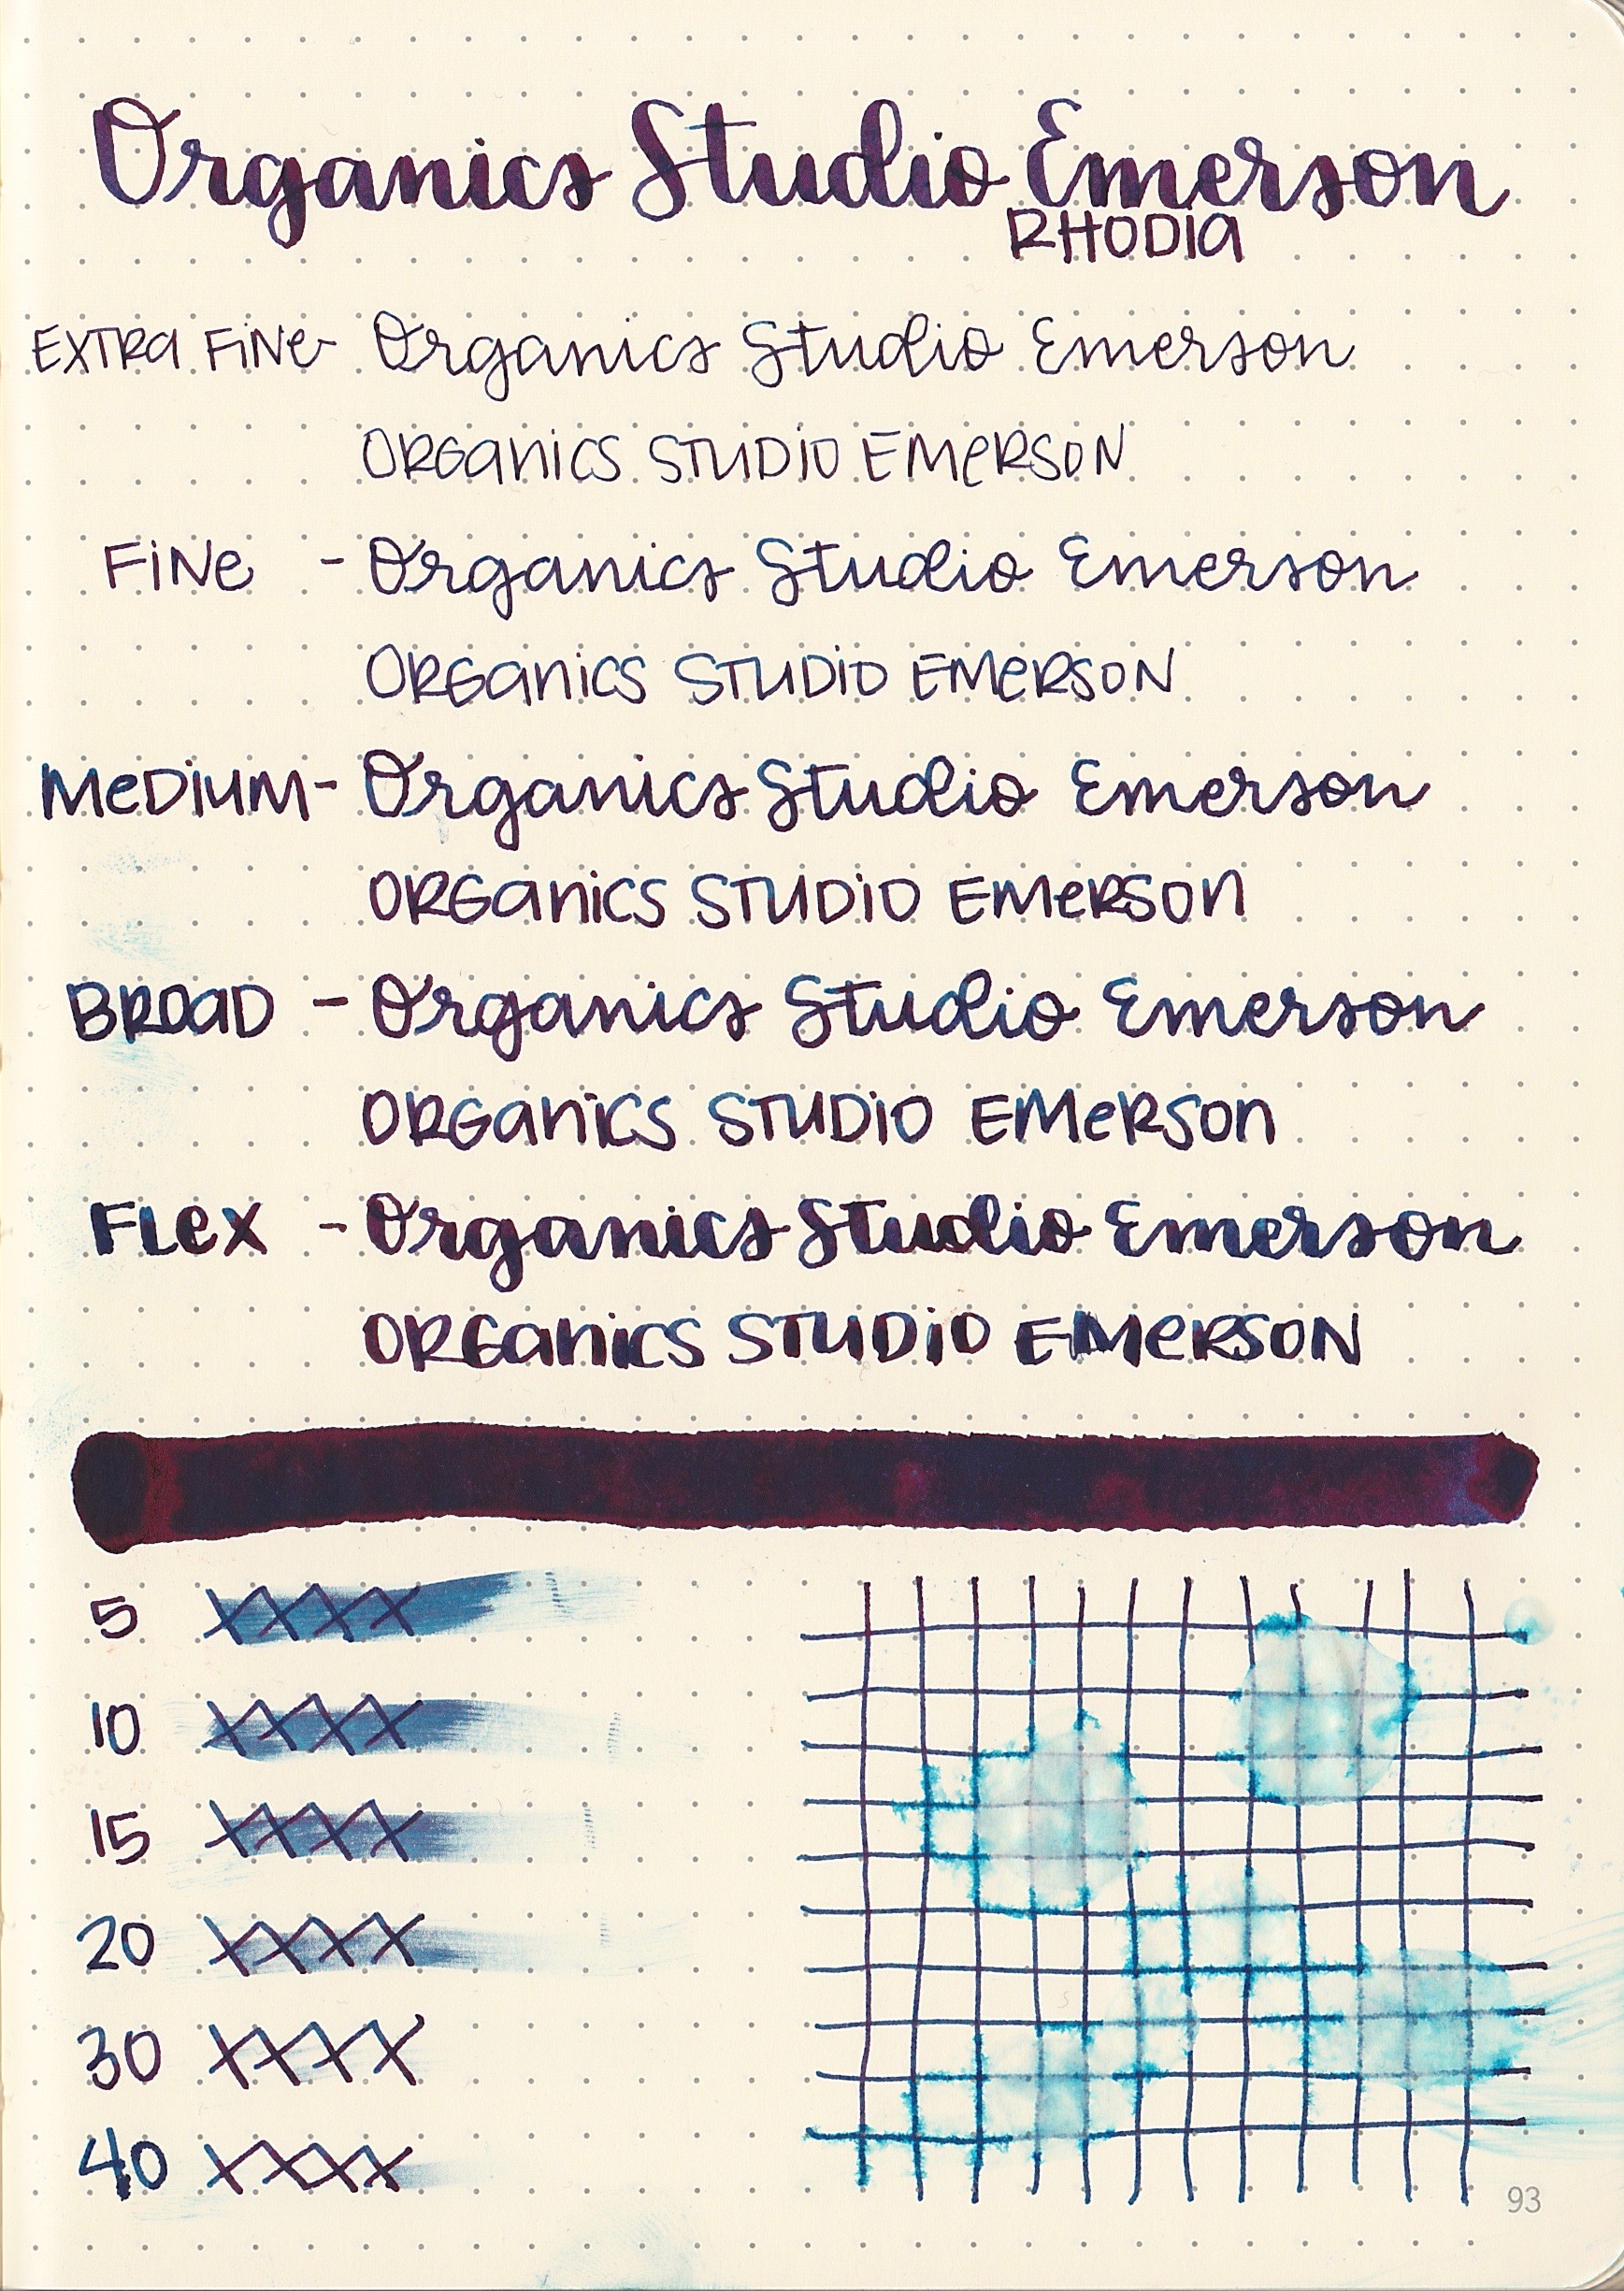 Organics Studio Emerson
RHODIa
EXTRa FiNe- Organics Studio Emerson
ORGaniCS STUDiO EMeRSON
FiNe - Organics Studio Emerson
ORGaniCS STUDiO EMeRSON
MeDiUM- Organics Studio Emerson
ORGaniCS STUDiO EMeRSOn
BROaD - Organics Studio Emerson
ORGaniCS STUDiO EMeRSOn
FLeX - Organics Studio Emerson
ORGaniCS STUDiO EMeRSON
5 XXXX
10 XXXX
15 XXXX
20 XXXX
30 XXXX
40 XXXX
93